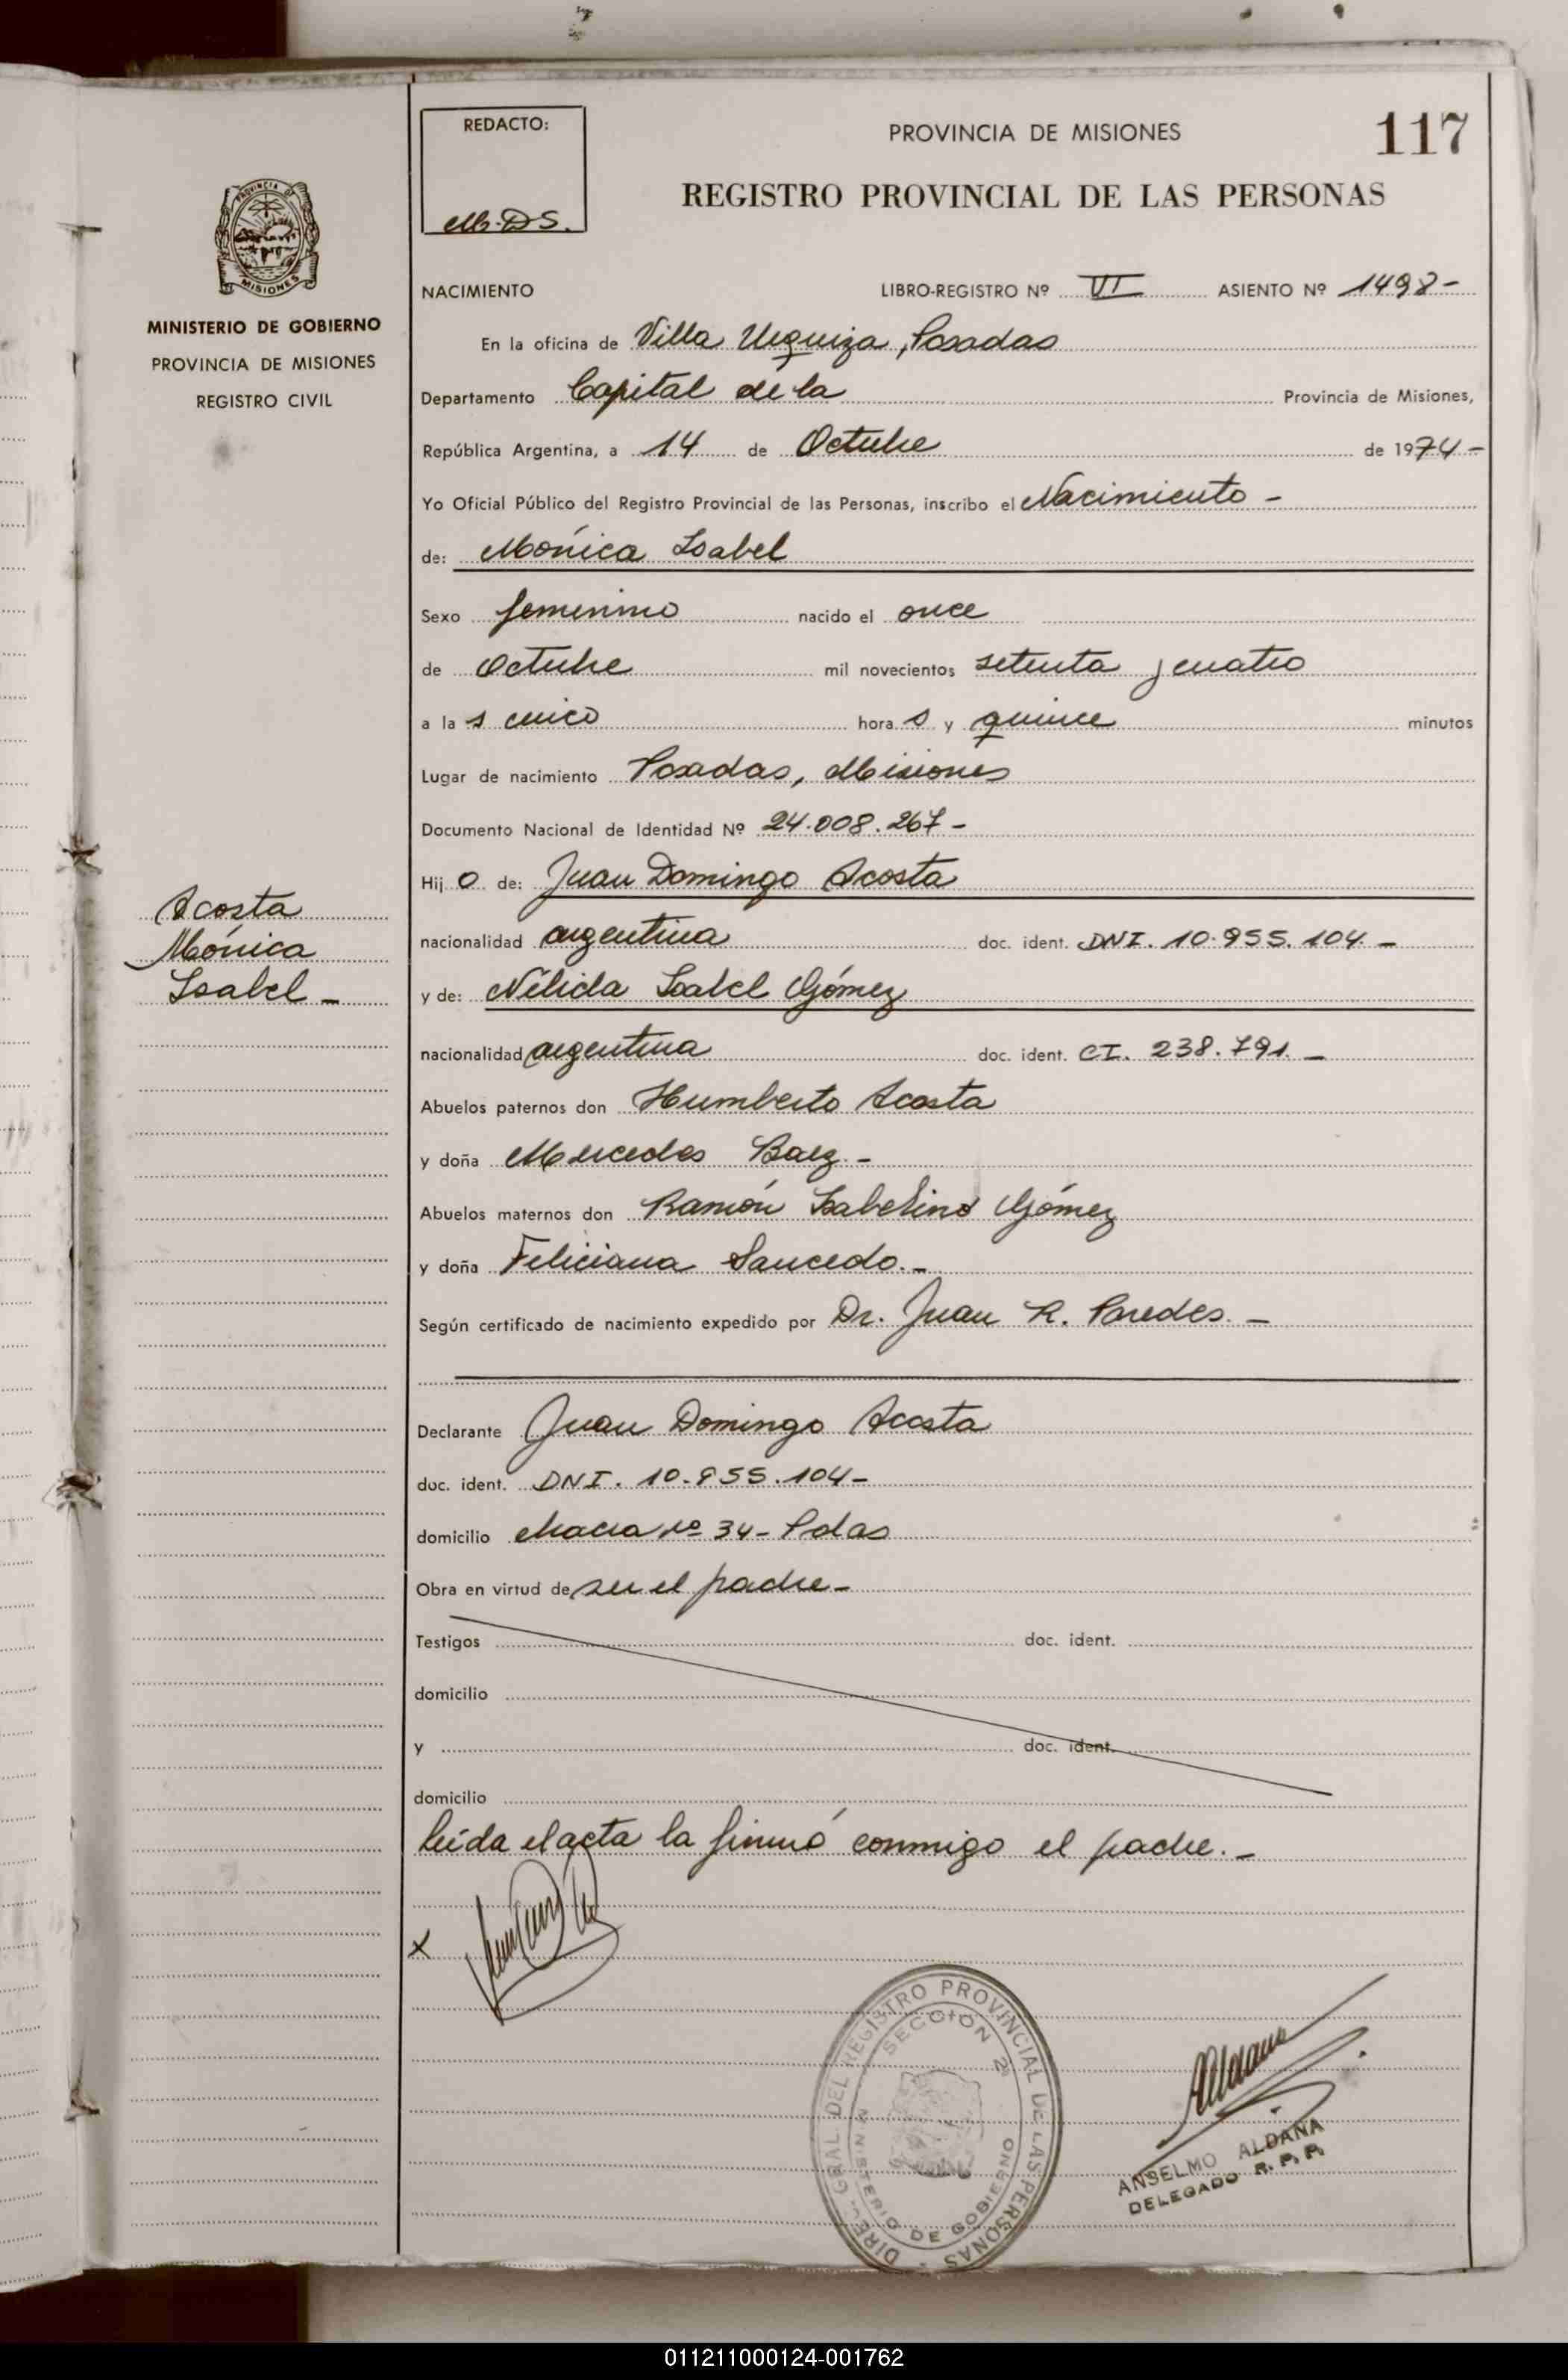 REDACTO:
M.DS.
PROVINCIA DE MISIONES
117
REGISTRO PROVINCIAL DE LAS PERSONAS
MISIONES
MINISTERIO DE GOBIERNO
PROVINCIA DE MISIONES
REGISTRO CIVIL
NACIMIENTO LIBRO-REGISTRO Nº VI ASIENTO Nº 1498-
En la oficina de Villa Urquiza, Posadas
Departamento Capital de la Provincia de Misiones,
República Argentina, a 14 de Octubre de 1974-
Yo Oficial Público del Registro Provincial de las Personas, inscribo el Nacimiento -
de: Mónica Isabel
Sexo femenino nacido el once
de Octubre mil novecientos setenta y cuatro
a la s cinco hora s y quince minutos
Lugar de nacimiento Posadas, Misiones
Documento Nacional de Identidad Nº 24.008.267-
Hij o de: Juan Domingo Acosta
nacionalidad argentina doc. ident. DNI. 10.955.104.-
Acosta
Mónica
Isabel-
y de: Nélida Isabel Gómez
nacionalidad argentina doc. ident. CI. 238.791.-
Abuelos paternos don Humberto Acosta
y doña Mercedes Baez.-
Abuelos maternos don Ramón Isabelino Gómez
y doña Feliciana Saucedo.-
Según certificado de nacimiento expedido por Dr. Juan R. Paredes.-
Declarante Juan Domingo Acosta
doc. ident. DNI. 10.955.104-
domicilio Chacra nº 34- Pdas
Obra en virtud de ser el padre-
Testigos doc. ident.
domicilio
y doc. ident.
domicilio
leída el acta la firmó conmigo el padre.-
x
DIREC. GRAL. DEL REGISTRO PROVINCIAL DE LAS PERSONAS
SECCION 2ª
MINISTERIO DE GOBIERNO
Aldana
ANSELMO ALDANA
DELEGADO R. P. P.
011211000124-001762